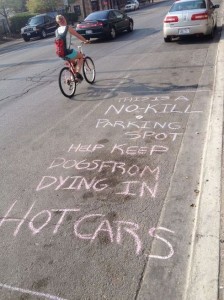 THIS IS A
NO-KILL
PARKING
SPOT
HELP KEEP
DOGS FROM
DYING IN
HOT CARS